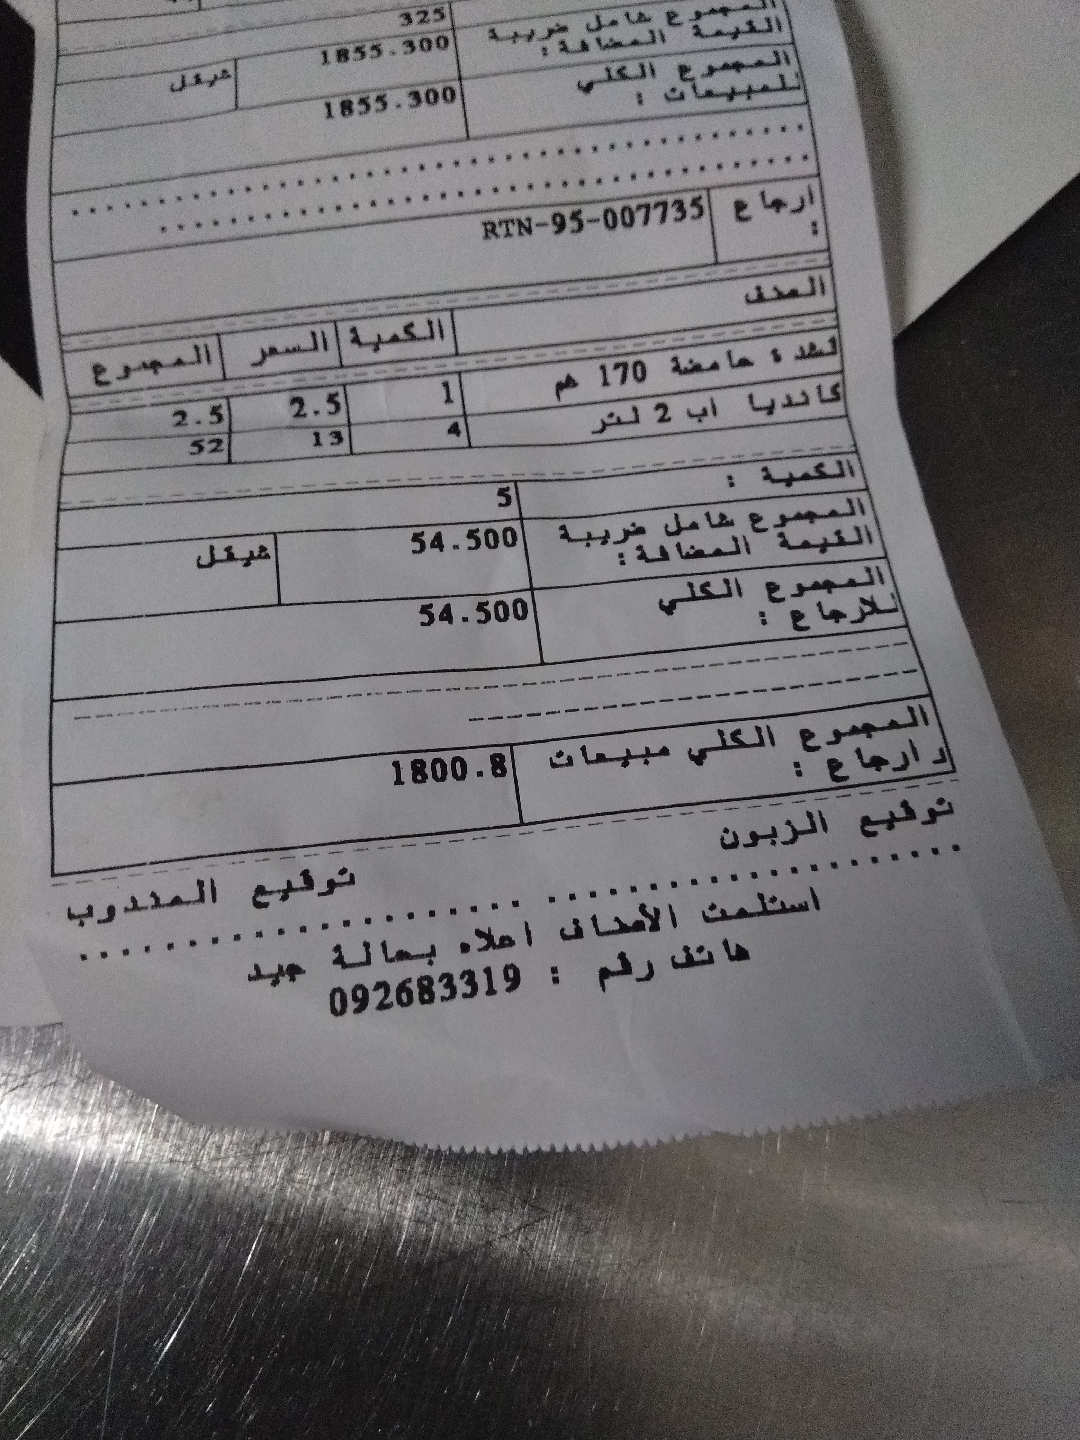 325
المجموع شامل ضريبة القيمة المضافة: 1855.300 شيقل
المجموع الكلي للمبيعات : 1855.300
ارجاع : RTN-95-007735
الصنف الكمية السعر المجموع
قشدة حامضة 170 غم 1 2.5 2.5
كانديا اب 2 لتر 4 13 52
الكمية : 5
المجموع شامل ضريبة القيمة المضافة: 54.500 شيقل
المجموع الكلي للارجاع : 54.500
المجموع الكلي مبيعات و ارجاع : 1800.8
توقيع الزبون توقيع المندوب
استلمت الأصناف اعلاه بحالة جيد
هاتف رقم : 092683319